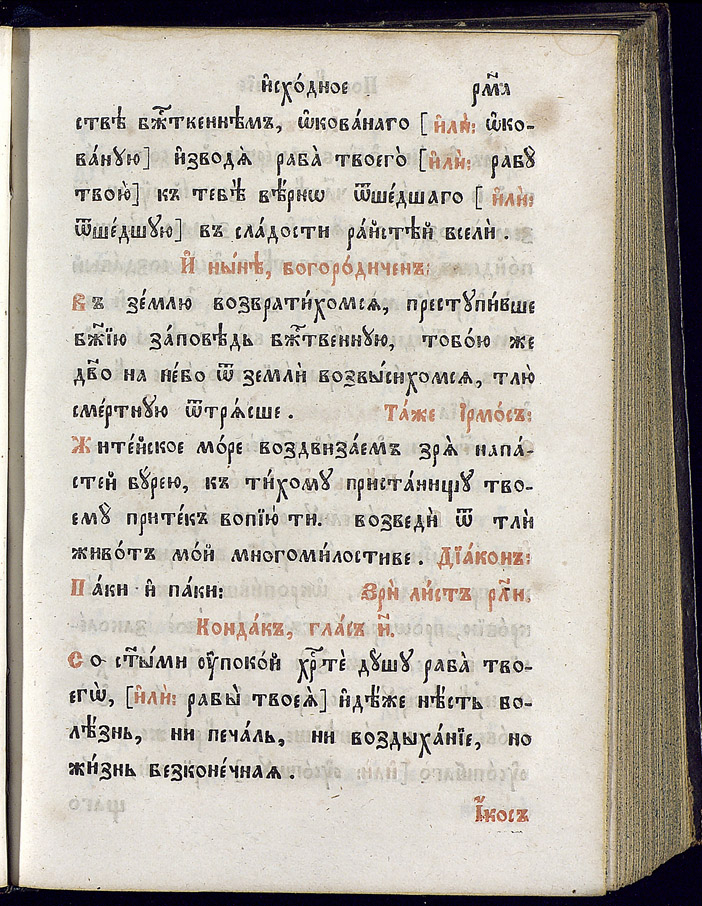 и҆схо́дное рм҃а
ствѣ бж҇ткеннѣмъ, ѡ҆кова́наго [и҆лѝ: ѡ҆ко-
ва́ную] и҆зводѧ̀ раба̀ твоего̀ [и҆лѝ: рабꙋ̀
твою̀] къ тебѣ̀ вѣ́рнѡ ѿше́дшаго [и҆лѝ:
ѿше́дшꙋю] въ сла́дости ра́йстѣй вселѝ.
И҆ ны́нѣ, богоро́диченъ:
Въ зе́млю возврати́хомсѧ, престꙋпи́вше
бж҃їю за́повѣдь бж҇твеннꙋю, тобо́ю же
дв҃о на не́бо ѿ землѝ возвы́сихомсѧ, тлю̀
сме́ртнꙋю ѿтрѧ́сше. Та́же І҆рмо́съ:
Жите́йское мо́ре воздвиза́емъ зрѧ̀ напа́-
стей бꙋ́рею, къ ти́хомꙋ приста́нищꙋ тво-
емꙋ̀ прите́къ вопїю́ ти. возведѝ ѿ тлѝ
живо́тъ мо́й многоми́лостиве. Дїа́конъ:
Па́ки и҆ па́ки: Зрѝ ли́стъ рл҃и.
Конда́къ, гла́съ и҃.
Со ст҃ы́ми ᲂу҆поко́й хр҇тѐ дꙋ́шꙋ раба̀ тво-
егѡ̀, [и҆лѝ: рабы̀ твоеѧ̀] и҆дѣ́же нѣ́сть бо-
лѣ́знь, ни печа́ль, ни воздыха́нїе, но
жи́знь безконе́чнаѧ.
І҆́косъ